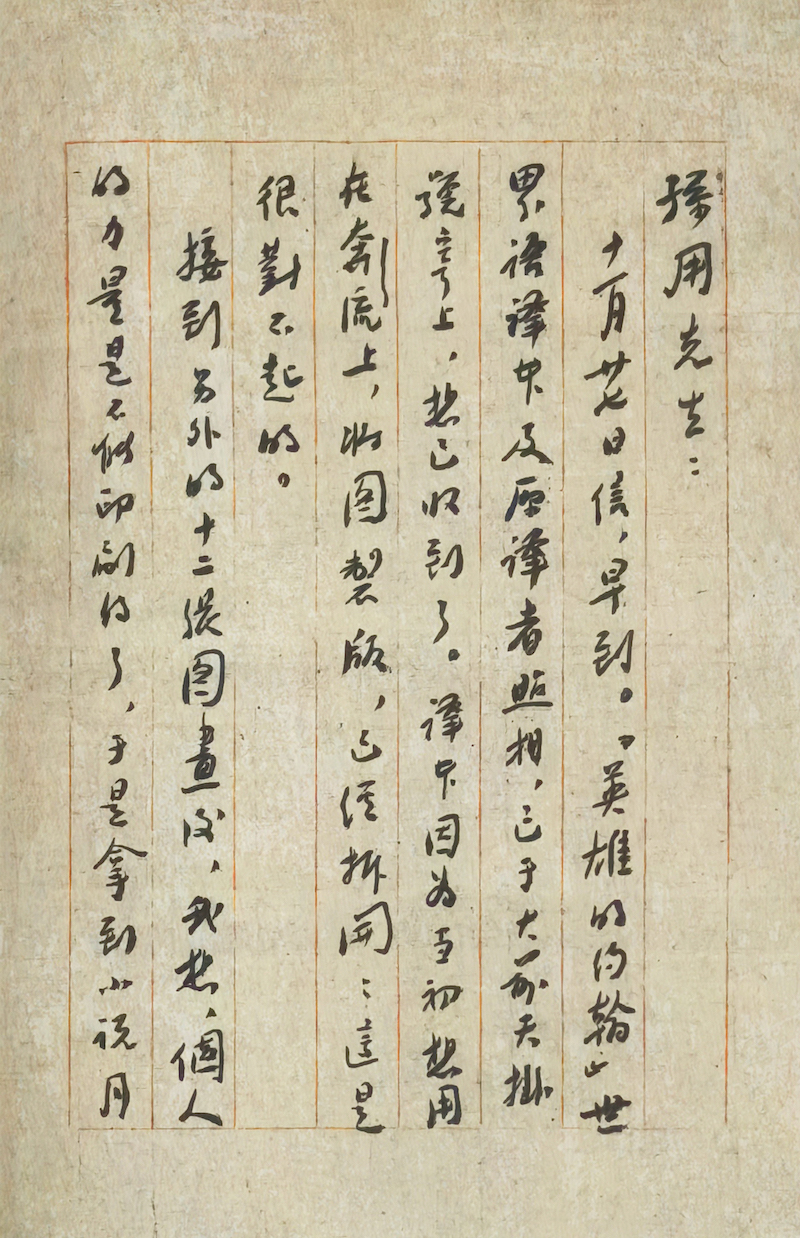 孫用先生：
十一月廿七日信，早到。「英雄的約翰」世
界語譯本及原譯者照相，已于大前天掛
號寄上，想已收到了。譯本因为當初想用
在奔流上，將图製版，已經拆開；這是
很對不起的。
接到另外的十二張图畫後，我想，個人
的力量是不能印刷的了，于是拿到小說月